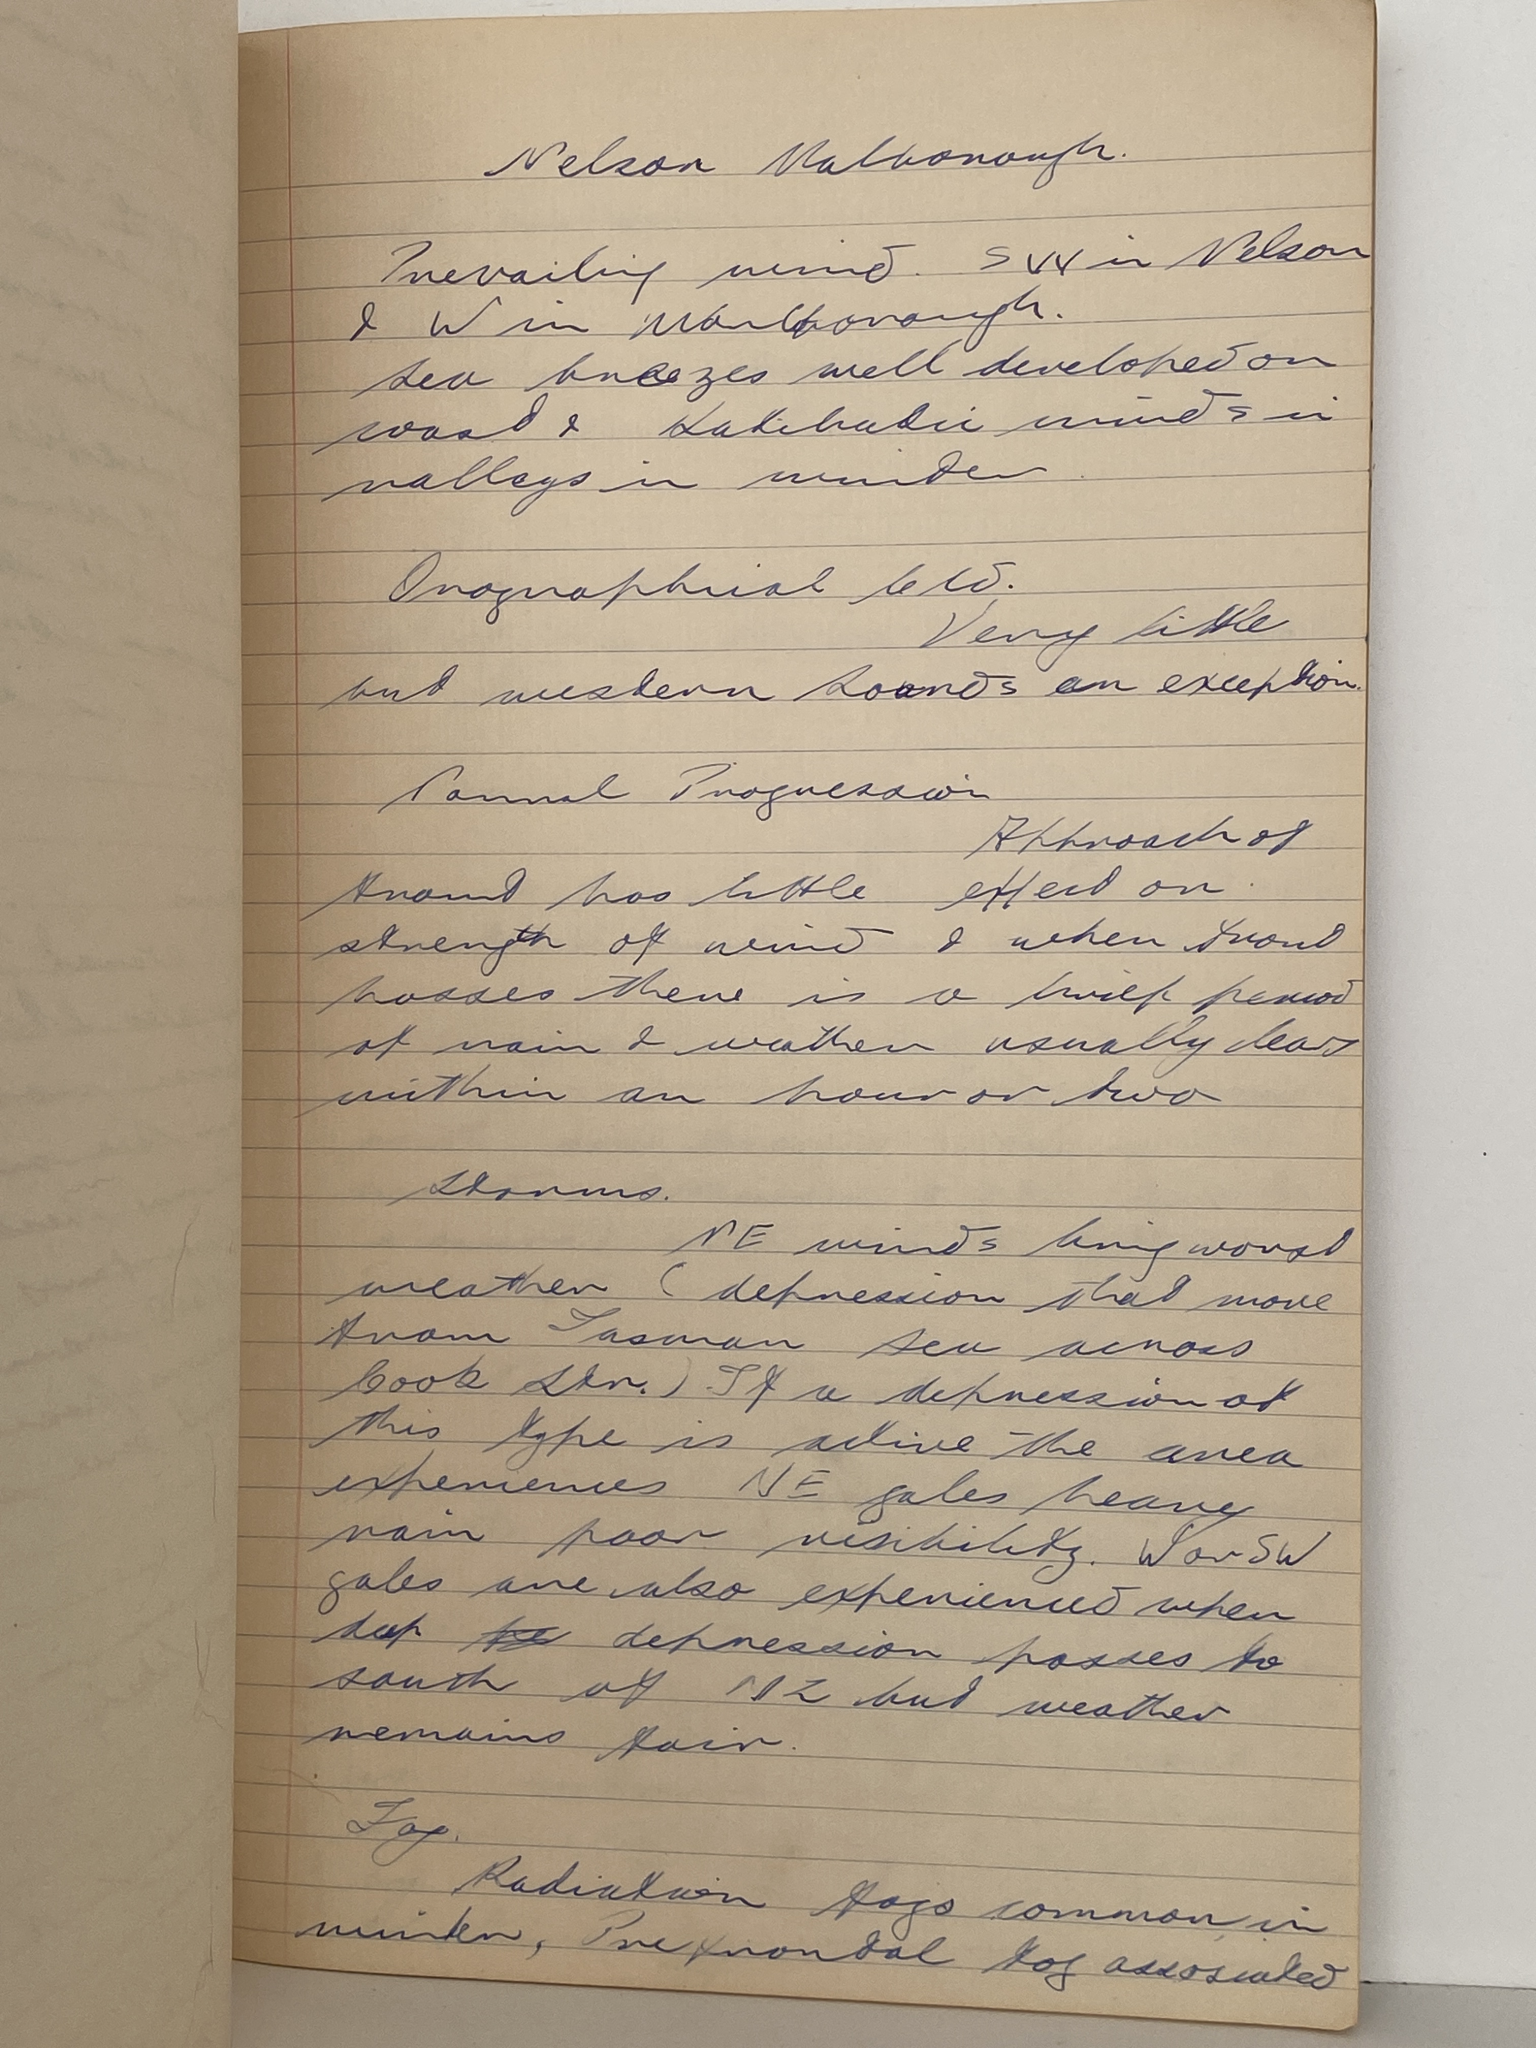 Nelson Malborough.
Prevailing wind. SW in Nelson
& W in Marlborough.
Sea breezes well developed on
coast & Katibatic winds in
valleys in winter.
Orographical cld.
Very little
but western sounds an exception.
Normal Progression
Approach of
front has little effect on
strength of wind & when front
passes there is a brief period
of rain & weather usually clears
within an hour or two
Storms.
NE winds bring worst
weather (depression that move
from Tasman sea across
Cook Str.) If a depression of
this type is active the area
experiences NE gales heavy
rain poor visibility. W or SW
gales are also experienced when
deep depression passes to
south of NZ but weather
remains fair.
Fog.
Radiation fogs common in
winter, Pre frontal fog associated